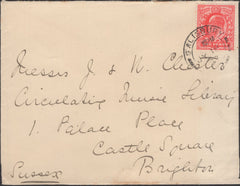 Messrs J & W. Chester
Circulating Music Library
1. Palace Place
Castle Square
Brighton
Sussex